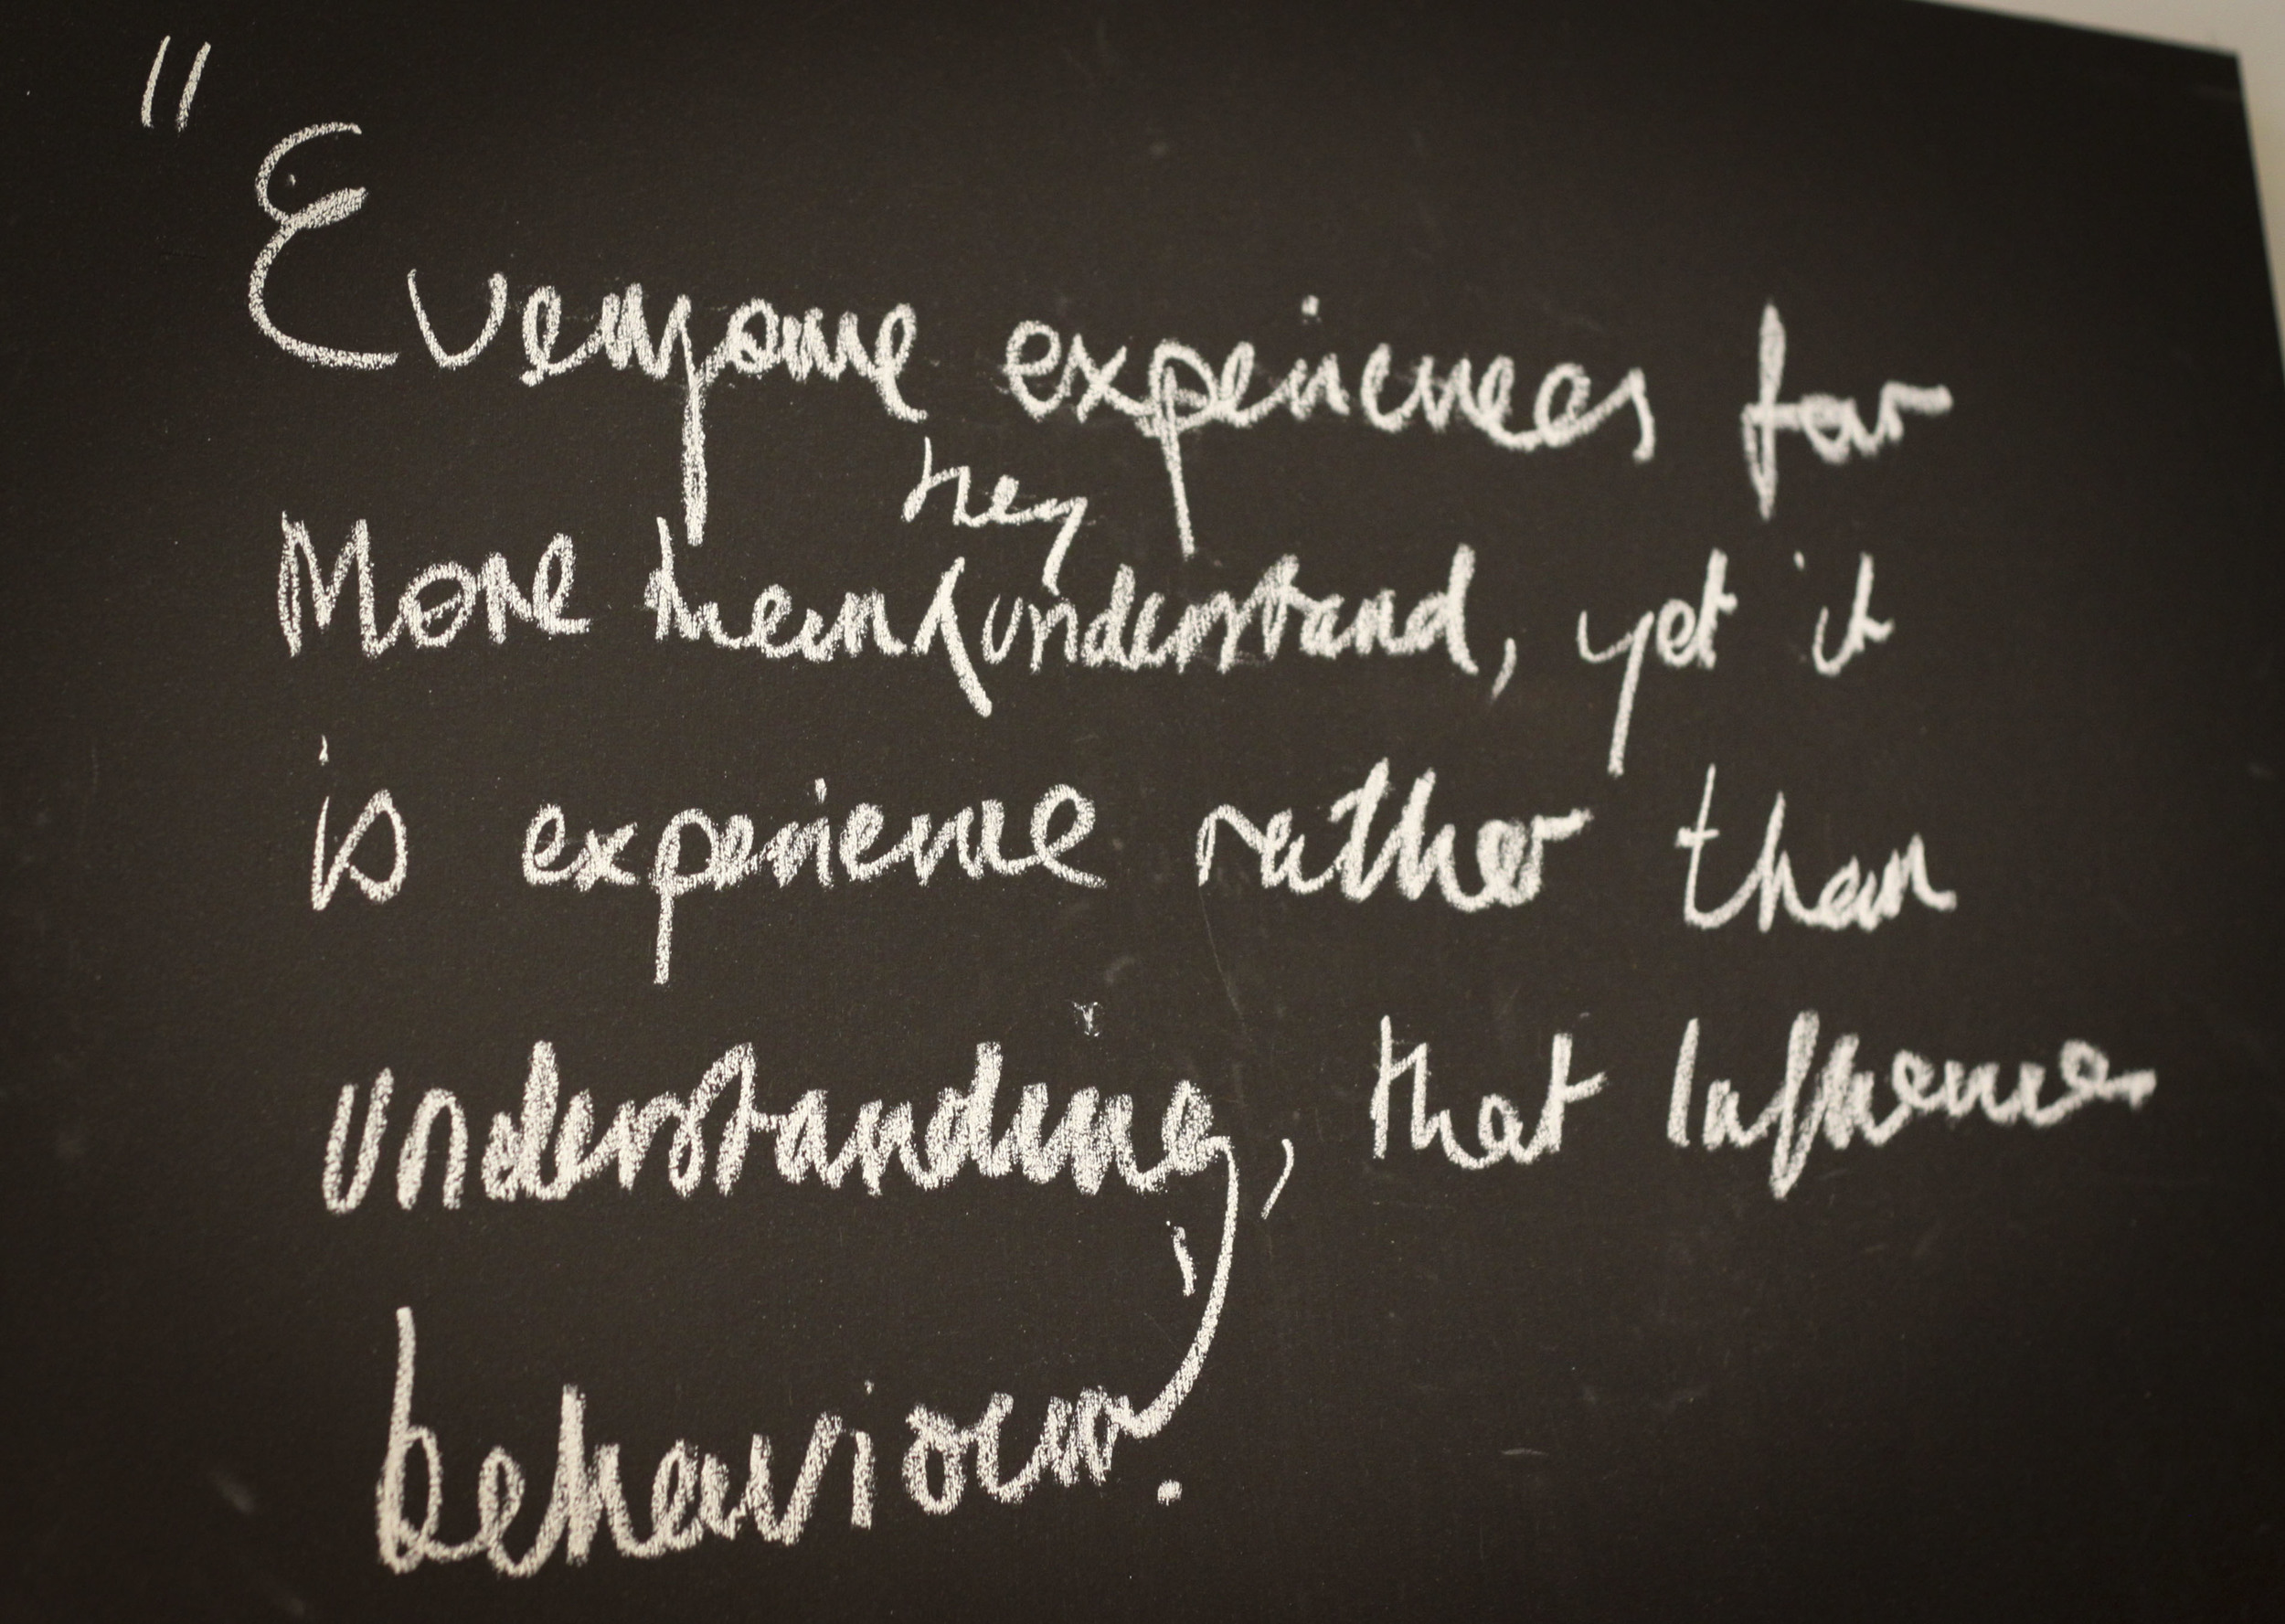 "Everyone experiences far
More than they understand, yet it
is experience rather than
understanding, that Influence
behaviour.